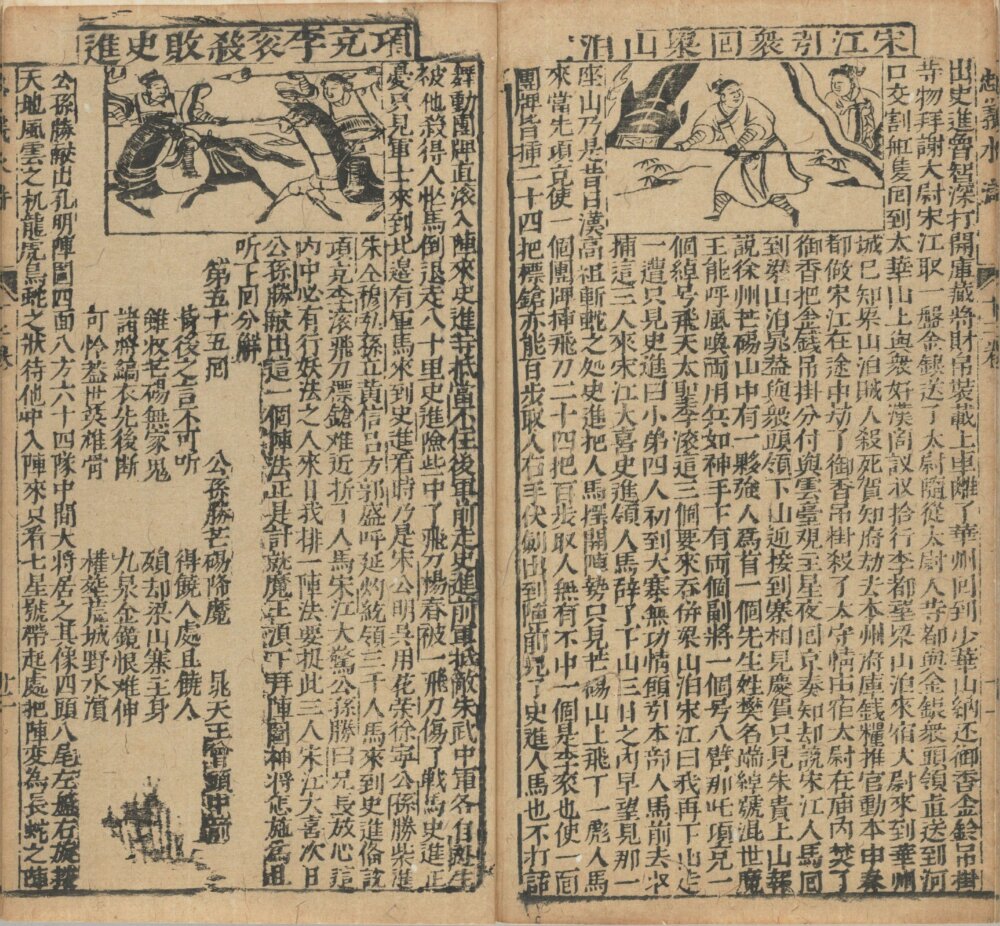 忠義水滸
十二卷
宋江引眾回梁山泊
出史進魯智深打開庫藏將財帛裝載上車離了華州回到少華山納还御香金鈴吊掛
等物拜謝大尉宋江取一盤金銀送了太尉隨從太尉人等都與金銀眾頭領直送到河
口交割舡隻回到太華山上與眾好漢商議收拾行李都望梁山泊來宿大尉來到華州
城巳知梁山泊賊人殺死賀知府劫去本州府庫錢糧推官動本申奏
都做宋江在途中劫了御香吊掛殺了太守情由宿太尉在庙內焚了
御香把金鈴吊掛分付與雲臺观主星夜回京奏知却說宋江人馬回
到梁山泊晁盖與眾頭領下山迎接到寨相見慶賀只見朱貴上山報
說徐州芒碭山中有一夥強人為首一個先生姓樊名端綽號混世魔
王能呼風喚雨用兵如神手下有兩個副將一個号八臂那吒項充一
個綽号飛天大聖李滾這三個要來吞併梁山泊宋江曰我再下山走
一遭只見史進曰小弟四人初到大寨無功情愿引本部人馬前去収
捕這三人來宋江大喜史進領人馬辞了下山三日之內早望見那一
座山乃是昔日漢高祖斬蛇之処史進把人馬擺開陣勢只見芒碭山上飛下一彪人馬
來當先項充使一個團牌揷飛刀二十四把百步取人無有不中一個是李衮也使一面
團牌皆揷二十四把標鎗亦能百步取人右手伏劍出到陣前見了史進人馬也不打話
項充李衮殺敗史進
舞動團牌直滾入陣來史進等抵當不住後軍前走史進前軍抵敵朱武中軍各自逃生
被他殺得人怭馬倒退走八十里史進險些中了飛刀楊春被一飛刀傷了戰馬史進正
憂只見軍士來到北邊有軍馬來到史進看時乃是宋公明吳用花荣徐寧公孫勝柴進
朱仝穆弘孫立黃信呂方郭盛呼延灼統領三千人馬來到史進俻說
項充李滚飛刀標鎗难近折了人馬宋江大驚公孫勝曰兄長放心這
內中必有行妖法之人來日我排一陣法要捉此三人宋江大喜次日
公孫勝献出這一個陣法正是計就魔王須下拜陣圖神將怎施為且
听下回分解
第五十五回　公孫勝芒碭降魔　晁天王曾頭中箭
背後之言不可听　得饒人處且饒人
雖収芒碭無家鬼　頗却梁山寨主身
諸將縞衣先後斷　九泉金鏡恨难伸
可怜盖世英雄骨　權塟荒城野水濱
公孫勝献出孔明陣圖四面八方六十四隊中間大將居之其像四頭八尾左盤右旋按
天地風雲之机龍虎鳥蛇之狀待他冲入陣來只看七星號帶起處把陣変為長蛇之陣